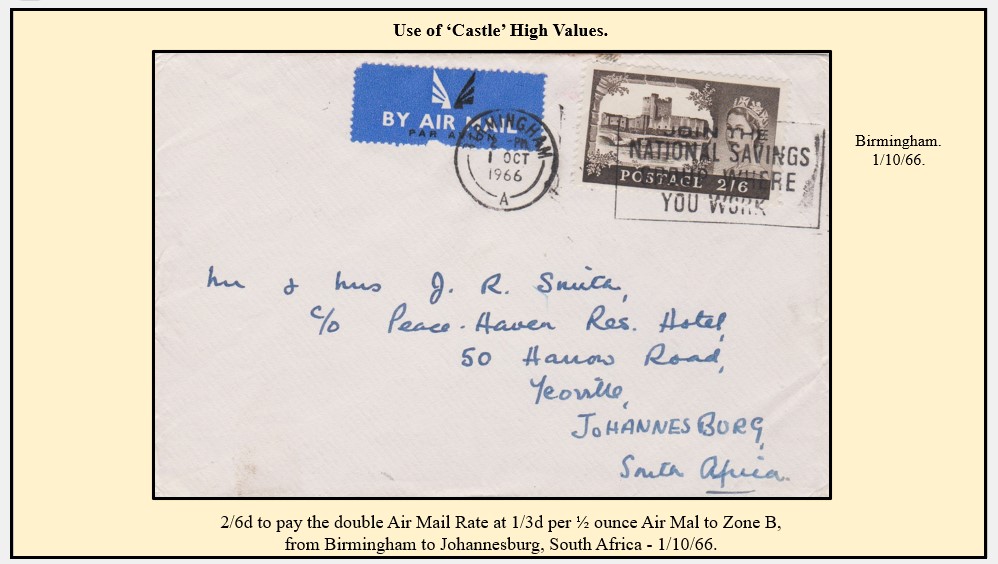 Use of ‘Castle’ High Values.
BY AIR MAIL
PAR AVION
BIRMINGHAM
-PM
1 OCT
1966
A
JOIN THE
NATIONAL SAVINGS
GROUP WHERE
YOU WORK
POSTAGE 2/6
Birmingham.
1/10/66.
Mr & Mrs J. R. Smith,
c/o Peace-Haven Res. Hotel,
50 Harrow Road,
Yeoville,
JOHANNESBURG,
South Africa.
2/6d to pay the double Air Mail Rate at 1/3d per ½ ounce Air Mal to Zone B,
from Birmingham to Johannesburg, South Africa - 1/10/66.